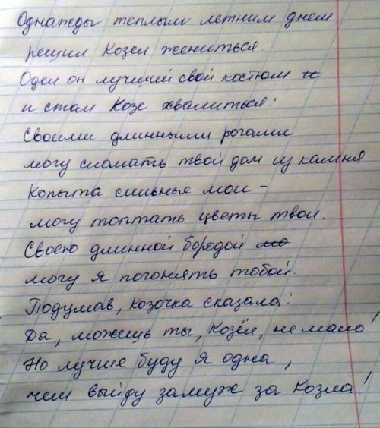 Однажды теплым летним днем
решил Козел жениться.
Одел он лучший свой костюм
и стал Козе хвалиться:
Своими длинными рогами
могу сломать твой дом из камня
Копыта сильные мои –
могу топтать цветы твои.
Своею длинной бородой
могу я погонять тобой.
Подумав, козочка сказала:
Да, можешь ты, Козёл, не мало!
Но лучше буду я одна,
чем выйду замуж за Козла!